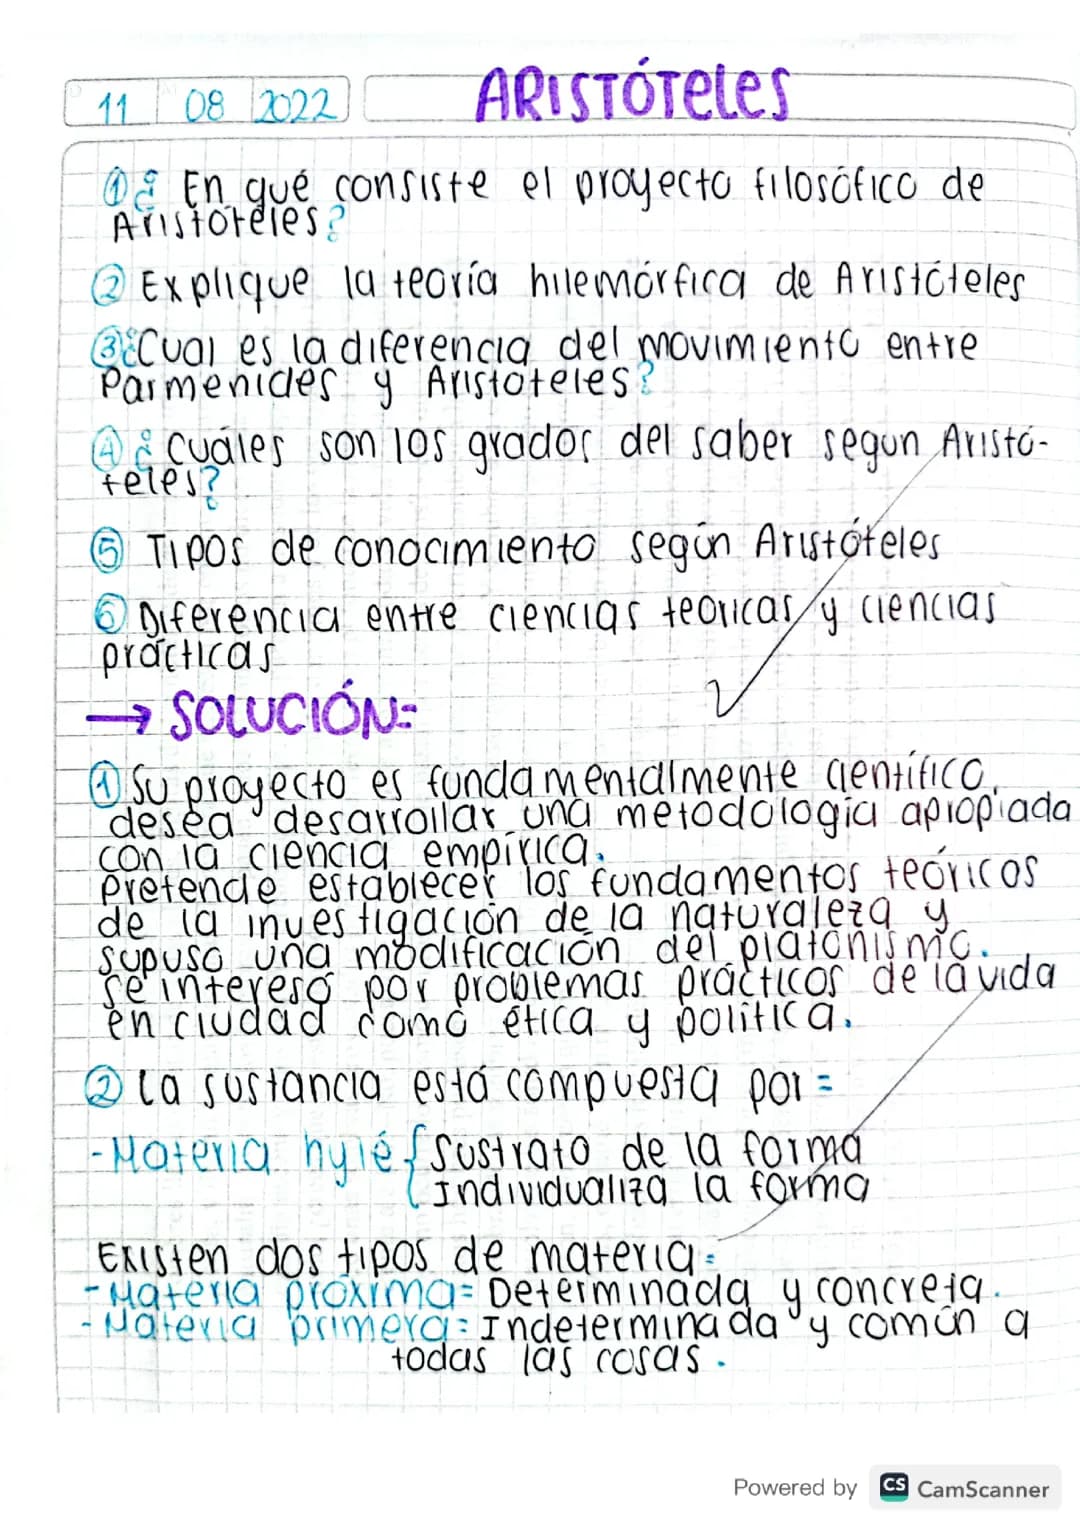 11 08 2022
ARISTÓTeles
① ¿ En qué consiste el proyecto filosófico de
Aristóteles?
② Explique la teoría hilemórfica de Aristóteles
③ ¿Cual es la diferencia del movimiento entre
Parmenides y Aristoteles?
④ ¿ Cuáles son los grados del saber segun Aristó-
teles?
⑤ Tipos de conocimiento según Aristóteles
⑥ Diferencia entre ciencias teoricas y ciencias
prácticas
→ SOLUCIÓN:
① Su proyecto es fundamentalmente científico,
desea desarrollar una metodologia apropiada
con la ciencia empírica.
Pretende establecer los fundamentos teóricos
de la investigación de la naturaleza y
supuso una modificación del platonismo.
Se interesó por problemas prácticos de la vida
en ciudad como ética y política.
② La sustancia está compuesta por =
-Materia hylé { Sustrato de la forma
Individualiza la forma
Existen dos tipos de materia:
- Materia próxima= Determinada y concreta.
- Materia primera: Indeterminada y común a
todas las cosas.
Powered by CS CamScanner